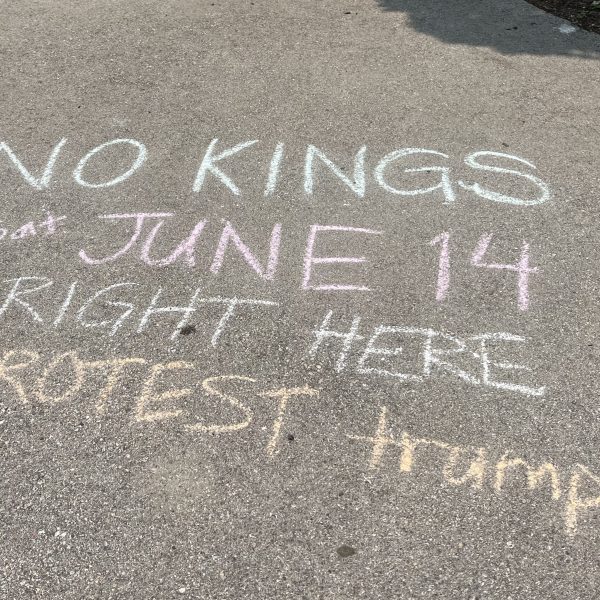 NO KINGS
JUNE 14
RIGHT HERE
PROTEST trump